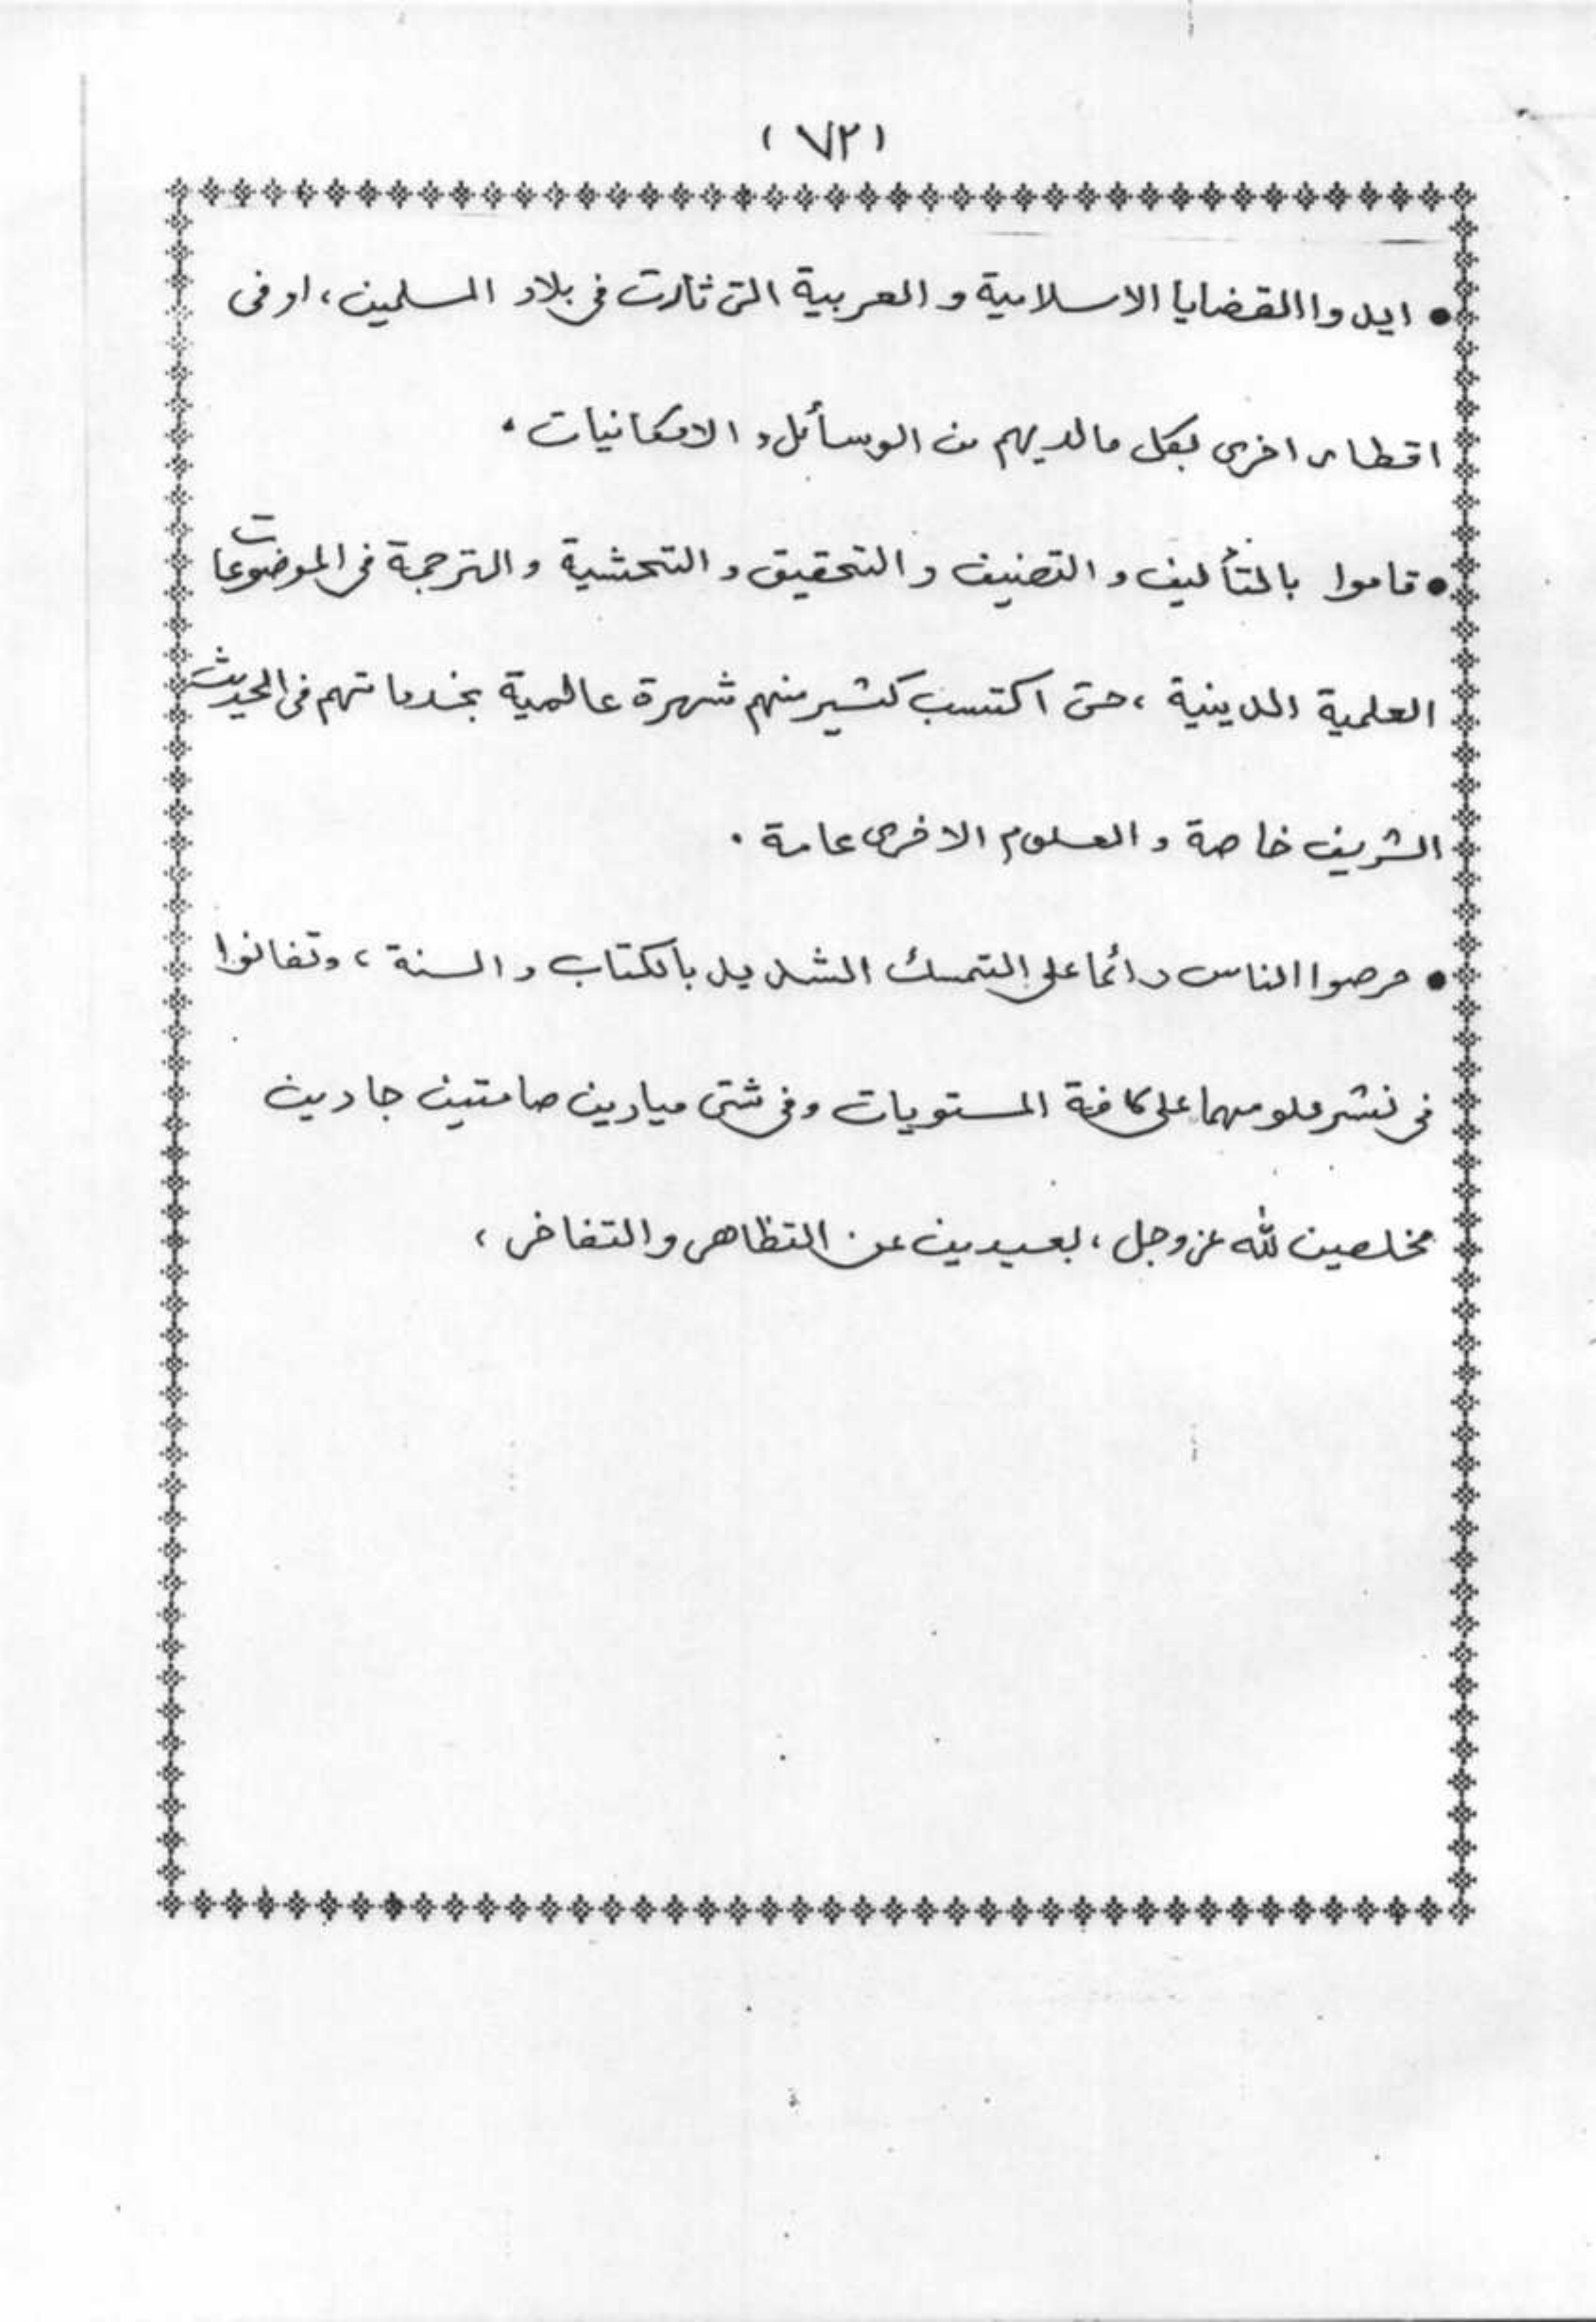 (٧٢)
• ايدوا القضايا الاسلامية و العربية التى ثارت فى بلاد المسلمين، او فى
اقطار اخرى بكل مالديهم من الوسائل و الامكانيات .
• قاموا بالتأليف و التصنيف و التحقيق و التحشية و الترجمة فى الموضوعات
العلمية الدينية ، حتى اكتسب كثير منهم شهرة عالمية بخدماتهم فى الحديث
الشريف خاصة و العلوم الاخرى عامة .
• حرصوا الناس دائما على التمسك الشديد بالكتاب و السنة ، وتفانوا
فى نشر علومهما على كافة المستويات وفى شتى ميادين صامتين جادين
مخلصين لله عز وجل ، بعيدين عن التظاهر و التفاخر ،